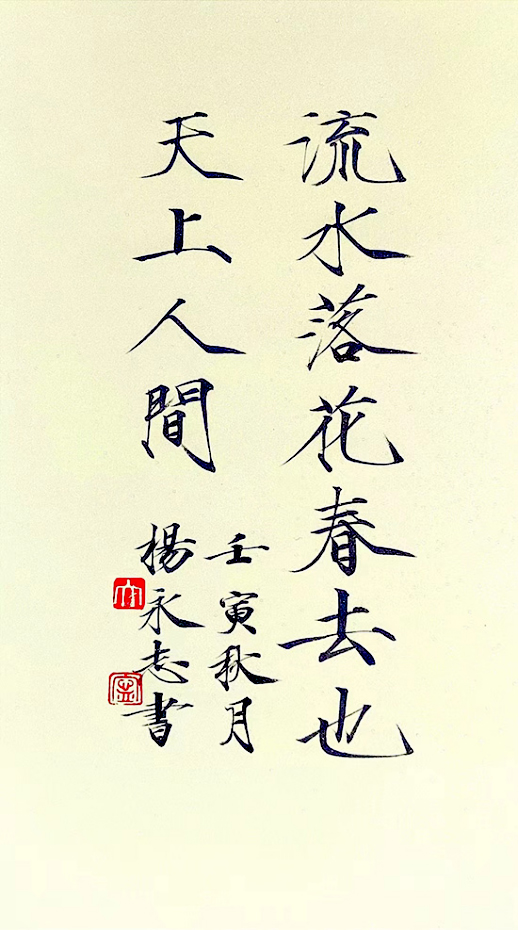 流水落花春去也
天上人間
壬寅秋月
楊永志書